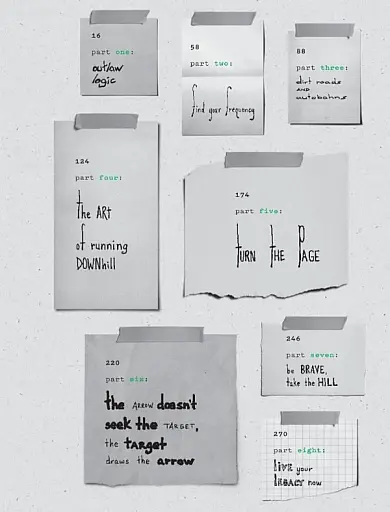 16
part one:
outlaw
logic
58
part two:
find your frequency
88
part three:
dirt roads
AND
autobahns
124
part four:
the ART
of running
DOWNhill
174
part five:
TURN THE PAGE
220
part six:
the ARROW doesn't
seek the TARGET,
the TARGET
draws the arrow
246
part seven:
be BRAVE,
take the HILL
270
part eight:
LIVE your
LEGACY now